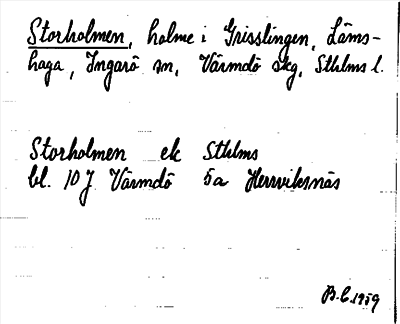 Storholmen, holme i Grisslingen, Läms-
haga, Ingarö sn, Värmdö skg, Sthlms l.
Storholmen ek Sthlms
bl. 10 J Värmdö 5a Herrviksnäs
B.C. 1959